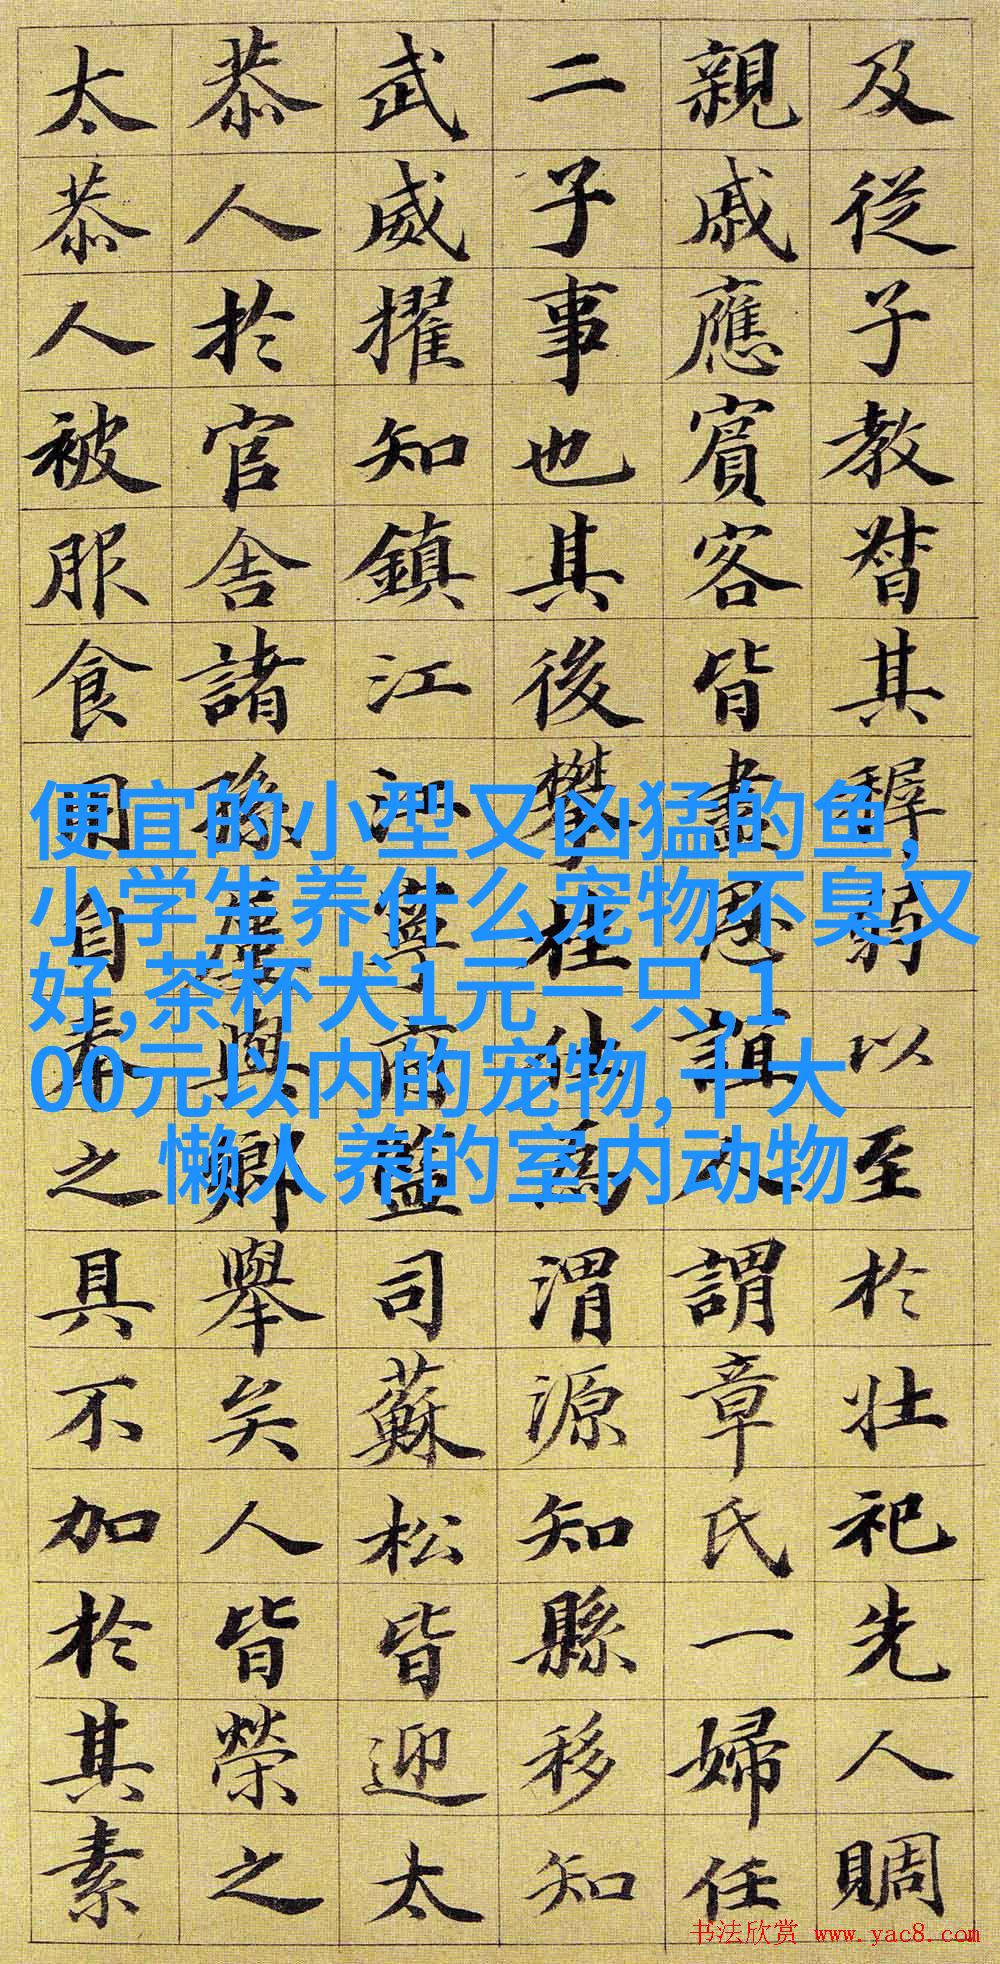 及從子教督其稺弱以至於壯祀先人賙
親戚應賓客皆盡恩誼人謂章氏一婦任
二子事也其後攀桂仕為渭源知縣移知
武威擢知鎮江江寧鹽司蘇松皆迎太
恭人於官舍諸孫與鄉舉矣人皆榮之
太恭人被服食用自奉之具不加於其素
便宜的小型又凶猛的鱼,
小学生养什么宠物不臭又
好,茶杯犬1元一只,1
00元以内的宠物,十大
懒人养的室内动物
书法欣赏 www.yac8.com